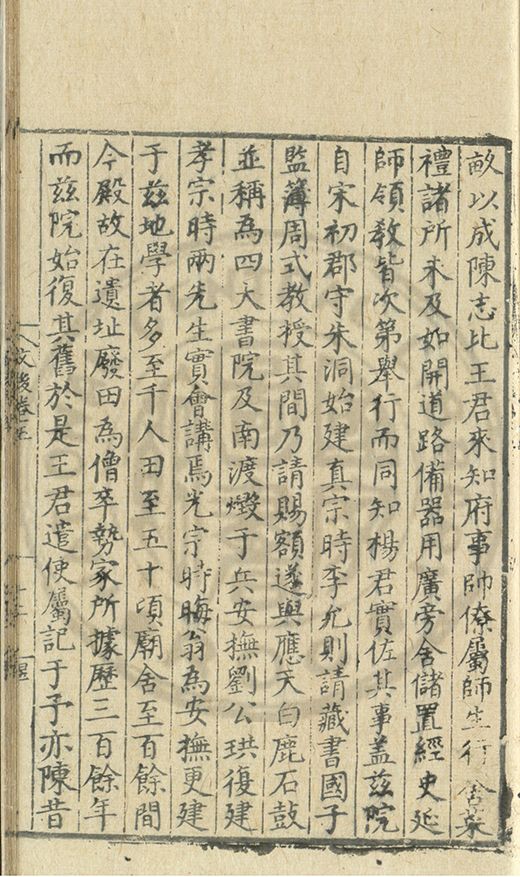 畝以成陳志比王君來知府事帥僚屬師生行舍菜
禮諸所未及如開道路備器用廣旁舍儲置經史延
師領教皆次第舉行而同知楊君實佐其事盖兹院
自宋初郡守朱洞始建真宗時李允則請藏書國子
監簿周式教授其間乃請賜額遂與應天白鹿石鼓
並稱為四大書院及南渡燬于兵安撫劉公珙復建
孝宗時兩先生實會講焉光宗時晦翁為安撫更建
于兹地學者多至千人田至五十頃廟舍至百餘間
今殿故在遺址廢田為僧卒勢家所據歷三百餘年
而兹院始復其舊於是王君遣使屬記于予亦陳昔